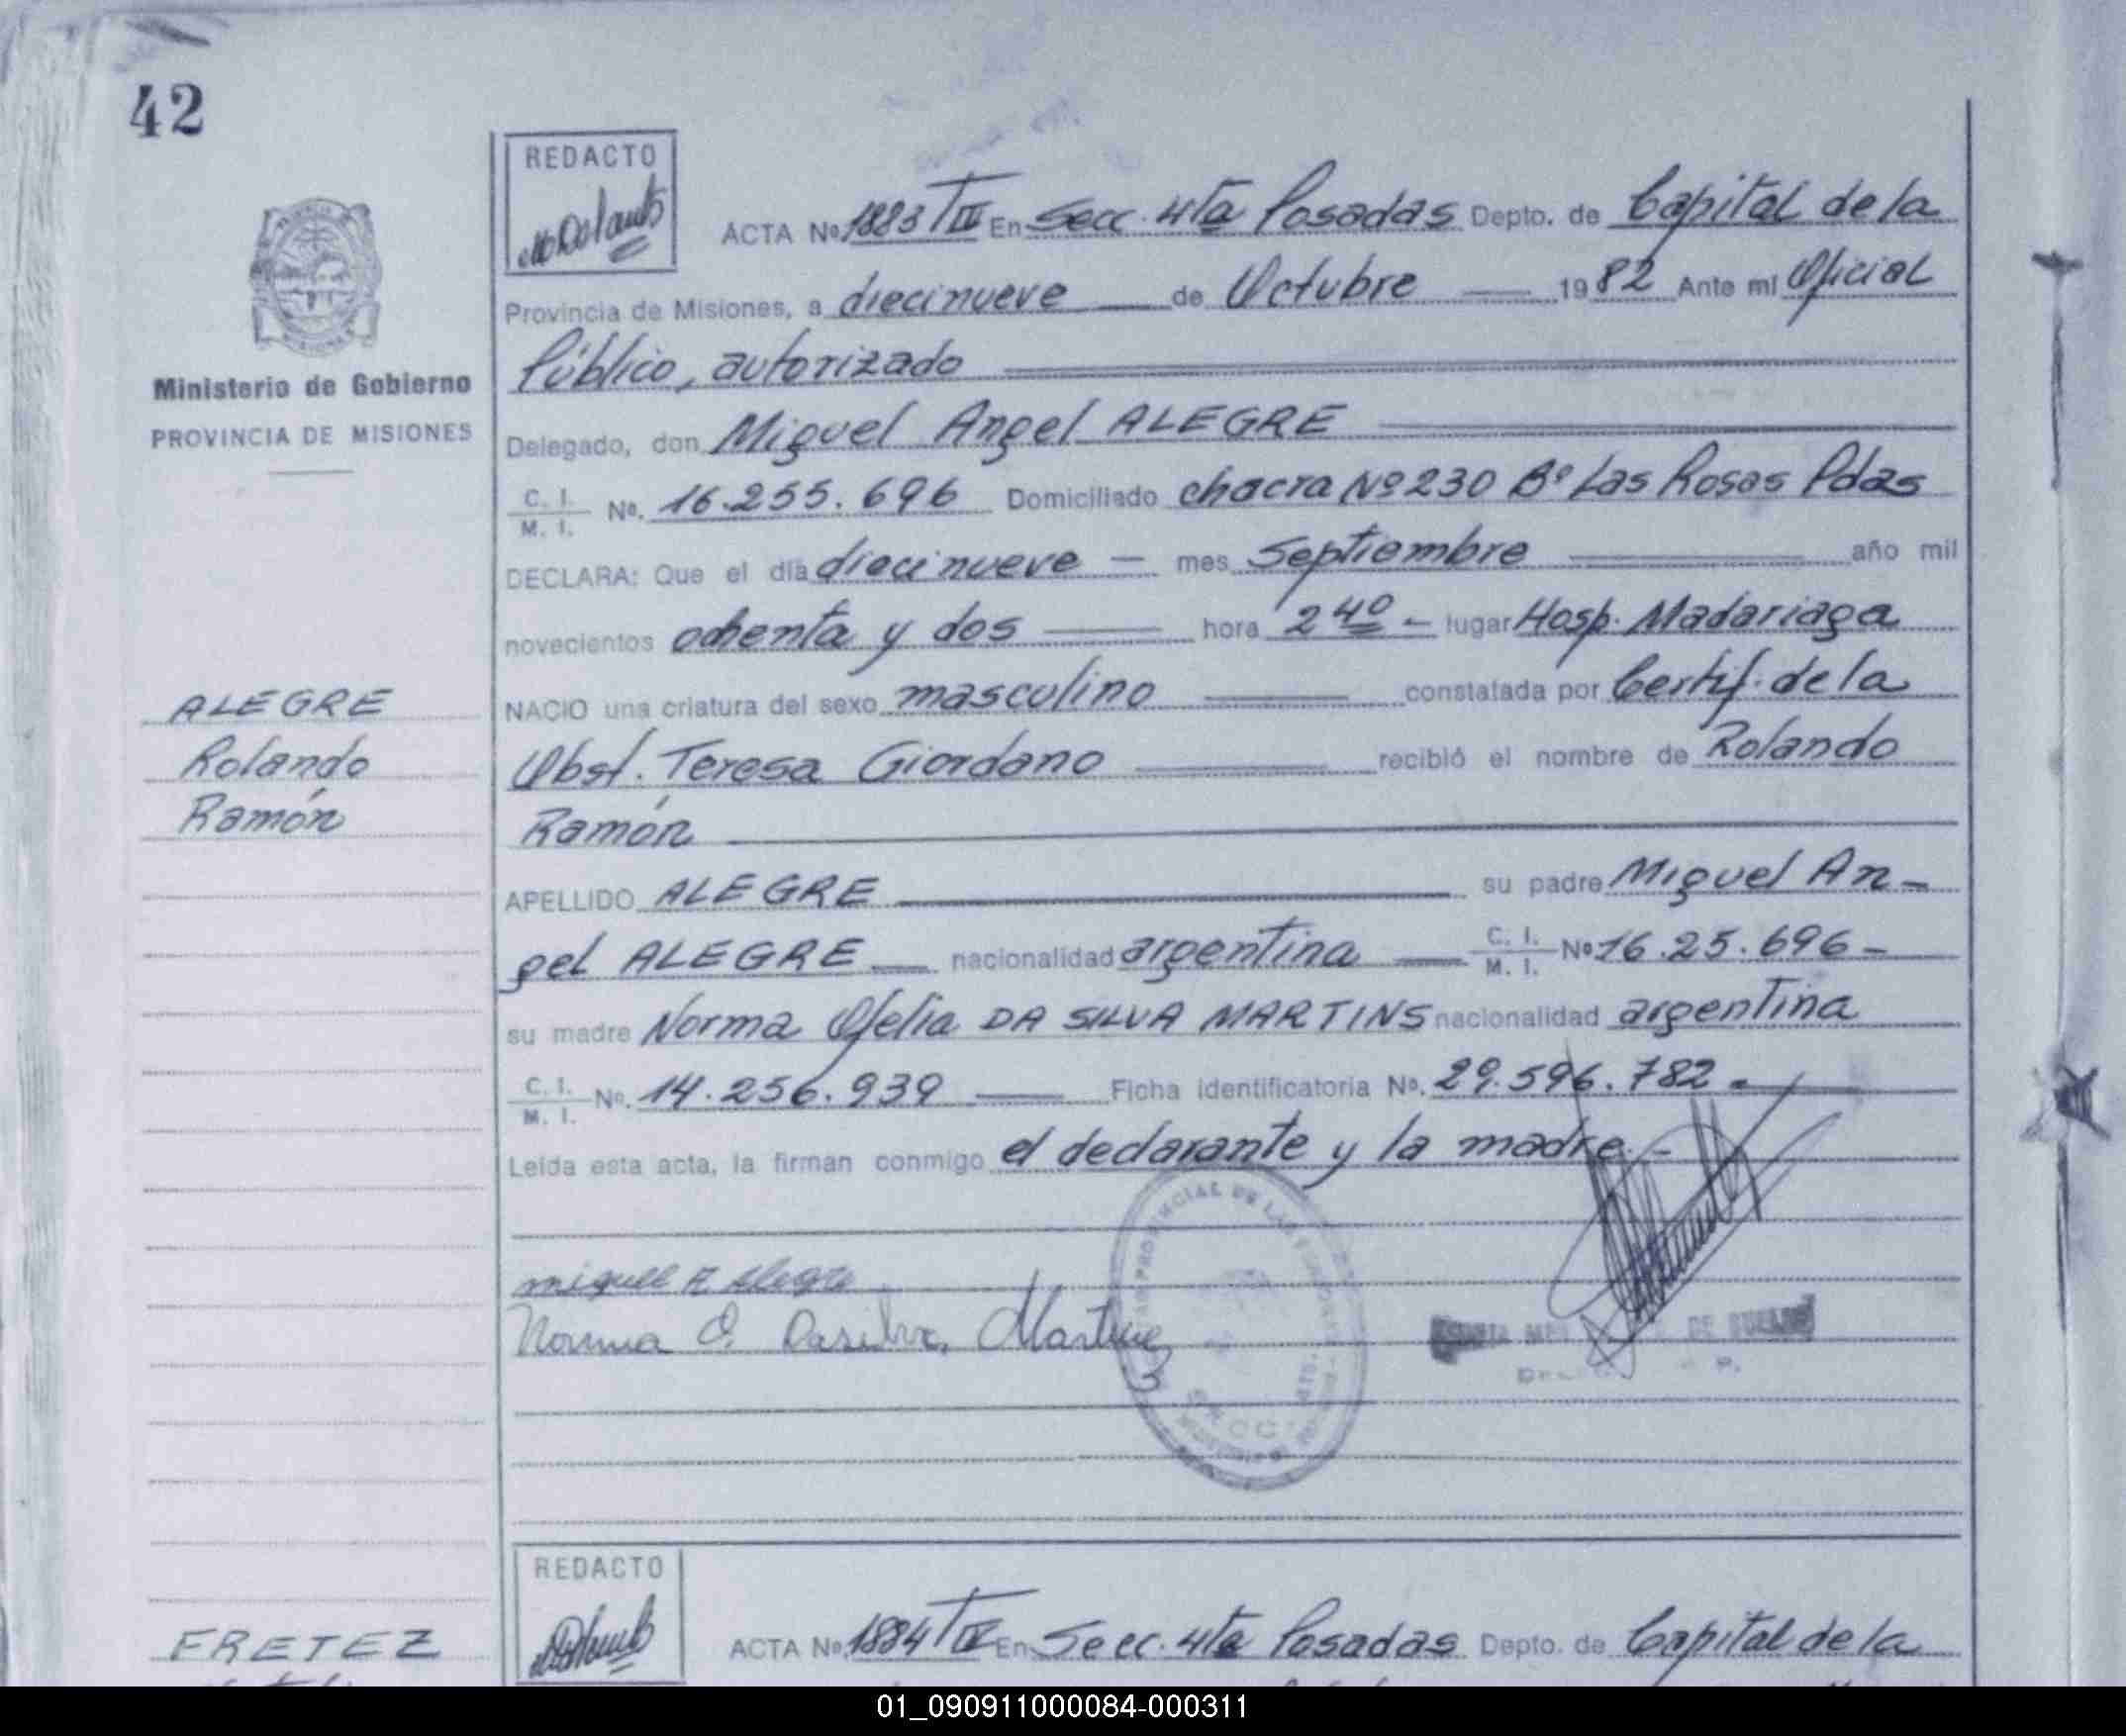 42
REDACTO
ACTA Nº 1883 TIII En Secc. 4ta Posadas Depto. de Capital de la
Provincia de Misiones, a diecinueve de Octubre 1982 Ante mi Oficial
Público, autorizado
Ministerio de Gobierno
PROVINCIA DE MISIONES
Delegado, don Miguel Angel ALEGRE
C. I.
M. I. Nº. 16.255.696 Domiciliado chacra Nº 230 Bº Las Rosas Pdas
DECLARA: Que el día diecinueve — mes Septiembre año mil
novecientos ochenta y dos hora 2 40 - lugar Hosp. Madariaga
NACIO una criatura del sexo masculino constatada por Certif. de la
Obst. Teresa Giordano recibió el nombre de Rolando
Ramón
ALEGRE
Rolando
Ramón
APELLIDO ALEGRE su padre Miguel An-
gel ALEGRE nacionalidad argentina C. I. M. I. Nº 16.25.696-
su madre Norma Ofelia DA SILVA MARTINS nacionalidad argentina
C. I.
M. I. Nº. 14.256.939 Ficha identificatoria Nº. 29.596.782-
Leída esta acta, la firman conmigo el declarante y la madre.-
miguel A Alegre
Norma O. Dasilva, Martine
REDACTO
ACTA Nº 1884 En Secc. 4ta Posadas Depto. de Capital de la
FRETEZ
01_090911000084-000311